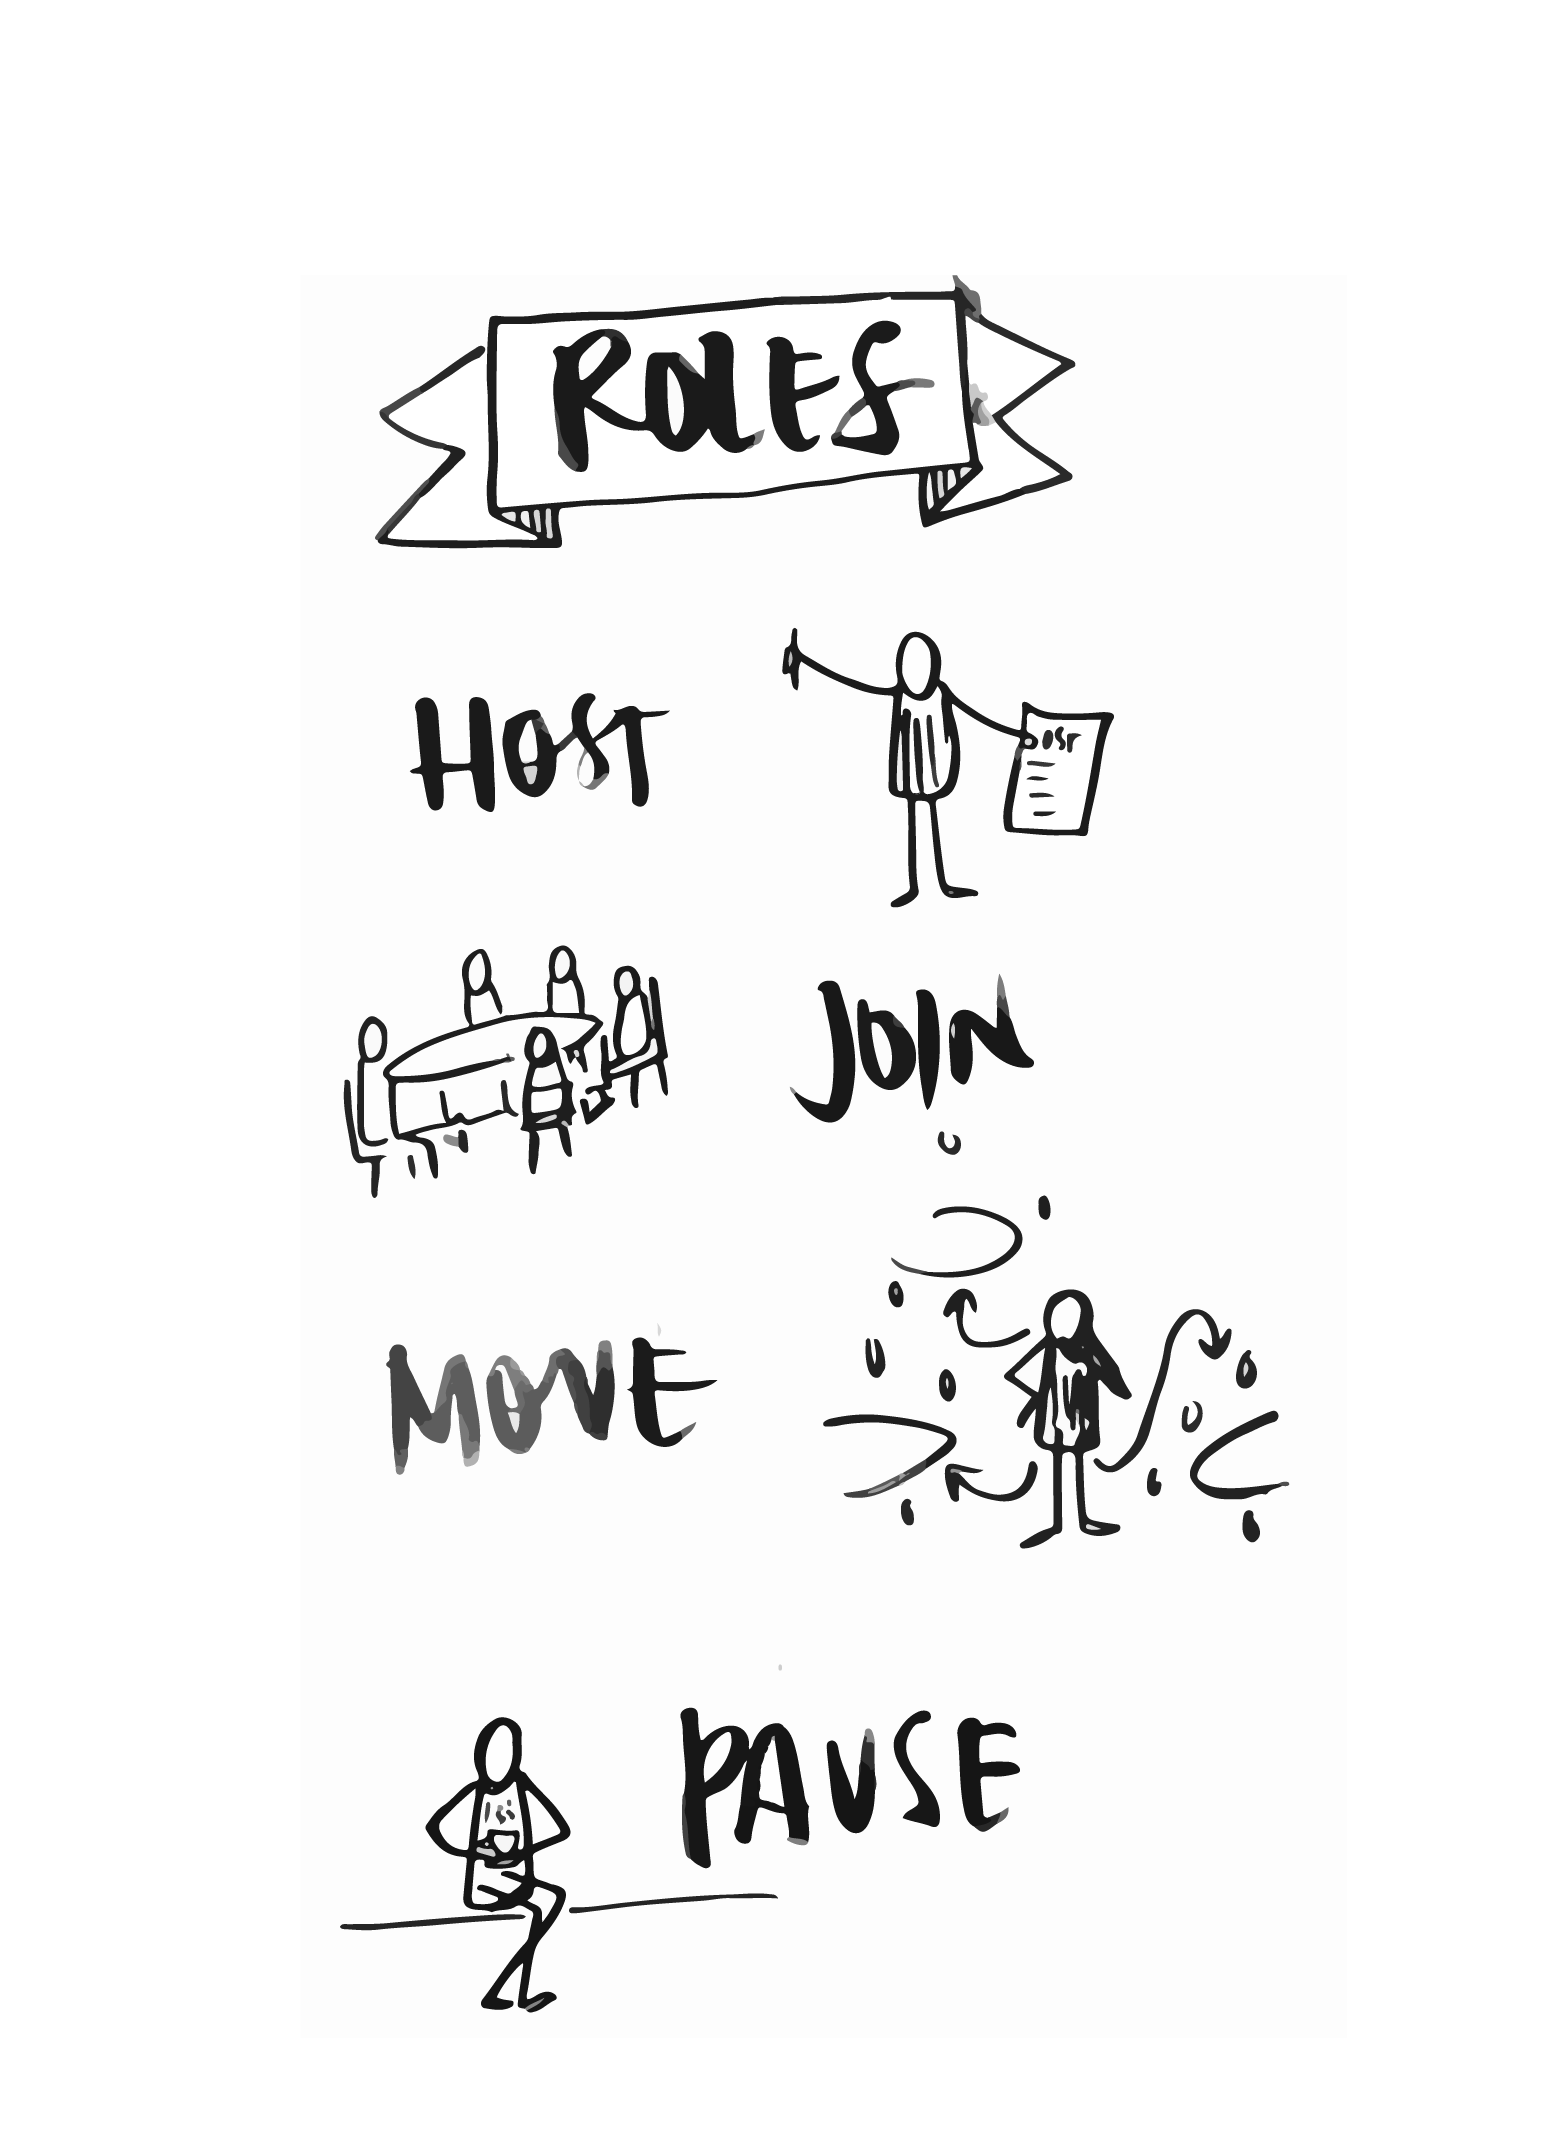 ROLES
HOST
OST
JOIN
MOVE
PAUSE